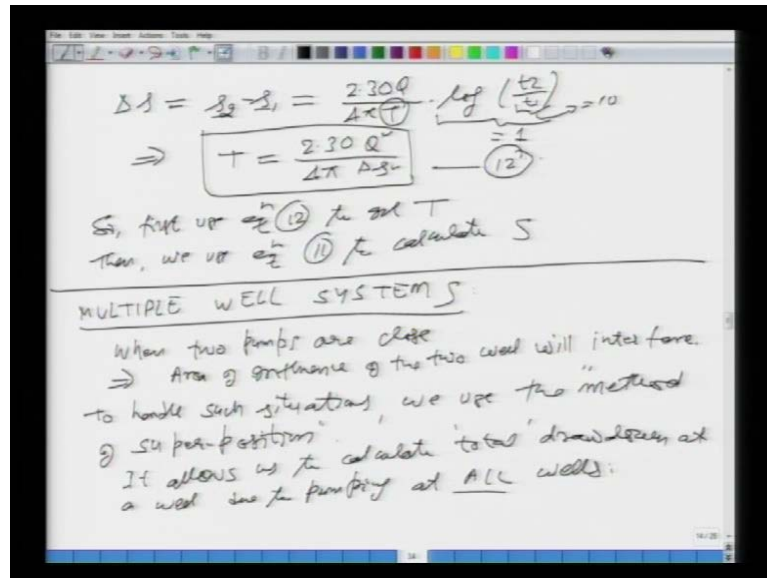 File Edit View Insert Actions Tools Help
Δs = s2 - s1 = 2.30Q / 4πT · log (t2/t1) = 10
= 1
⇒ T = 2.30 Q / 4π Δs — (12)
So, first use eqn (12) to get T
Then, we use eqn (11) to calculate S
MULTIPLE WELL SYSTEMS
When two pumps are close
⇒ Area of influence of the two well will interfere.
To handle such situations, we use the "method
of super-position".
It allows us to calculate 'total' drawdown at
a well due to pumping at ALL wells.
14/28
34